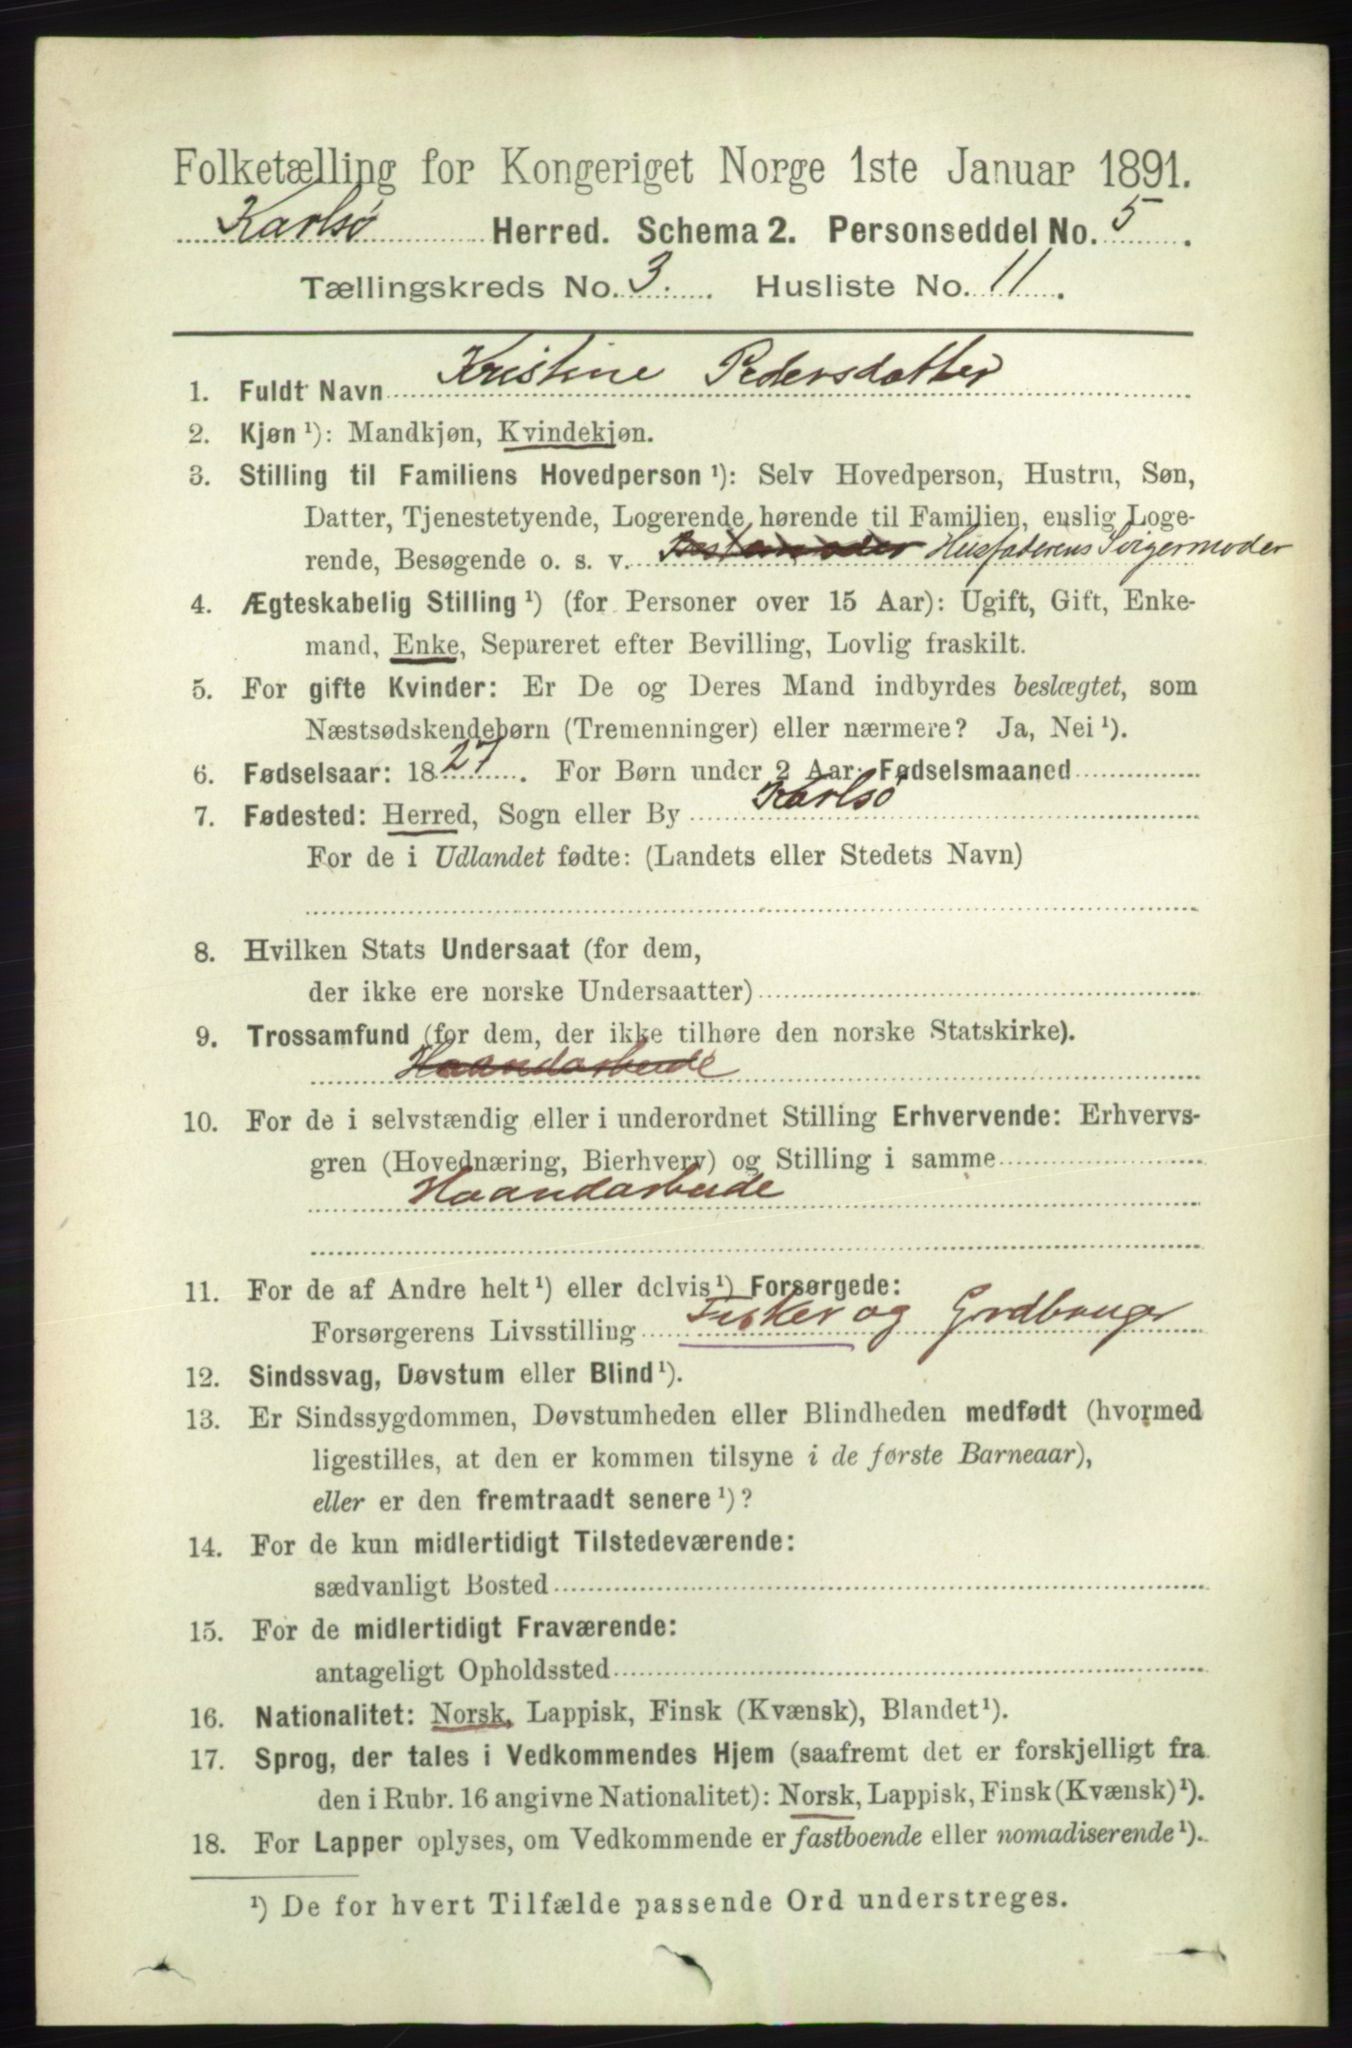 Folketælling for Kongeriget Norge 1ste Januar 1891.
Karlsø Herred. Schema 2. Personseddel No. 5.
Tællingskreds No. 3. Husliste No. 11.
1. Fuldt Navn Kristine Pedersdatter
2. Kjøn ¹): Mandkjøn, Kvindekjøn.
3. Stilling til Familiens Hovedperson ¹): Selv Hovedperson, Hustru, Søn,
Datter, Tjenestetyende, Logerende hørende til Familien, enslig Loge-
rende, Besøgende o. s. v. Husfaderens Svigermoder
4. Ægteskabelig Stilling ¹) (for Personer over 15 Aar): Ugift, Gift, Enke-
mand, Enke, Separeret efter Bevilling, Lovlig fraskilt.
5. For gifte Kvinder: Er De og Deres Mand indbyrdes beslægtet, som
Næstsødskendebørn (Tremenninger) eller nærmere? Ja, Nei ¹).
6. Fødselsaar: 1827. For Børn under 2 Aar: Fødselsmaaned
7. Fødested: Herred, Sogn eller By Karlsø
For de i Udlandet fødte: (Landets eller Stedets Navn)
8. Hvilken Stats Undersaat (for dem,
der ikke ere norske Undersaatter)
9. Trossamfund (for dem, der ikke tilhøre den norske Statskirke).
Haandarbeide
10. For de i selvstændig eller i underordnet Stilling Erhvervende: Erhvervs-
gren (Hovednæring, Bierhverv) og Stilling i samme
Haandarbeide
11. For de af Andre helt ¹) eller delvis ¹) Forsørgede:
Forsørgerens Livsstilling Fisker og Grdbruger
12. Sindssvag, Døvstum eller Blind ¹).
13. Er Sindssygdommen, Døvstumheden eller Blindheden medfødt (hvormed
ligestilles, at den er kommen tilsyne i de første Barneaar),
eller er den fremtraadt senere ¹)?
14. For de kun midlertidigt Tilstedeværende:
sædvanligt Bosted
15. For de midlertidigt Fraværende:
antageligt Opholdssted
16. Nationalitet: Norsk, Lappisk, Finsk (Kvænsk), Blandet ¹).
17. Sprog, der tales i Vedkommendes Hjem (saafremt det er forskjelligt fra
den i Rubr. 16 angivne Nationalitet): Norsk, Lappisk, Finsk (Kvænsk) ¹).
18. For Lapper oplyses, om Vedkommende er fastboende eller nomadiserende ¹).
¹) De for hvert Tilfælde passende Ord understreges.